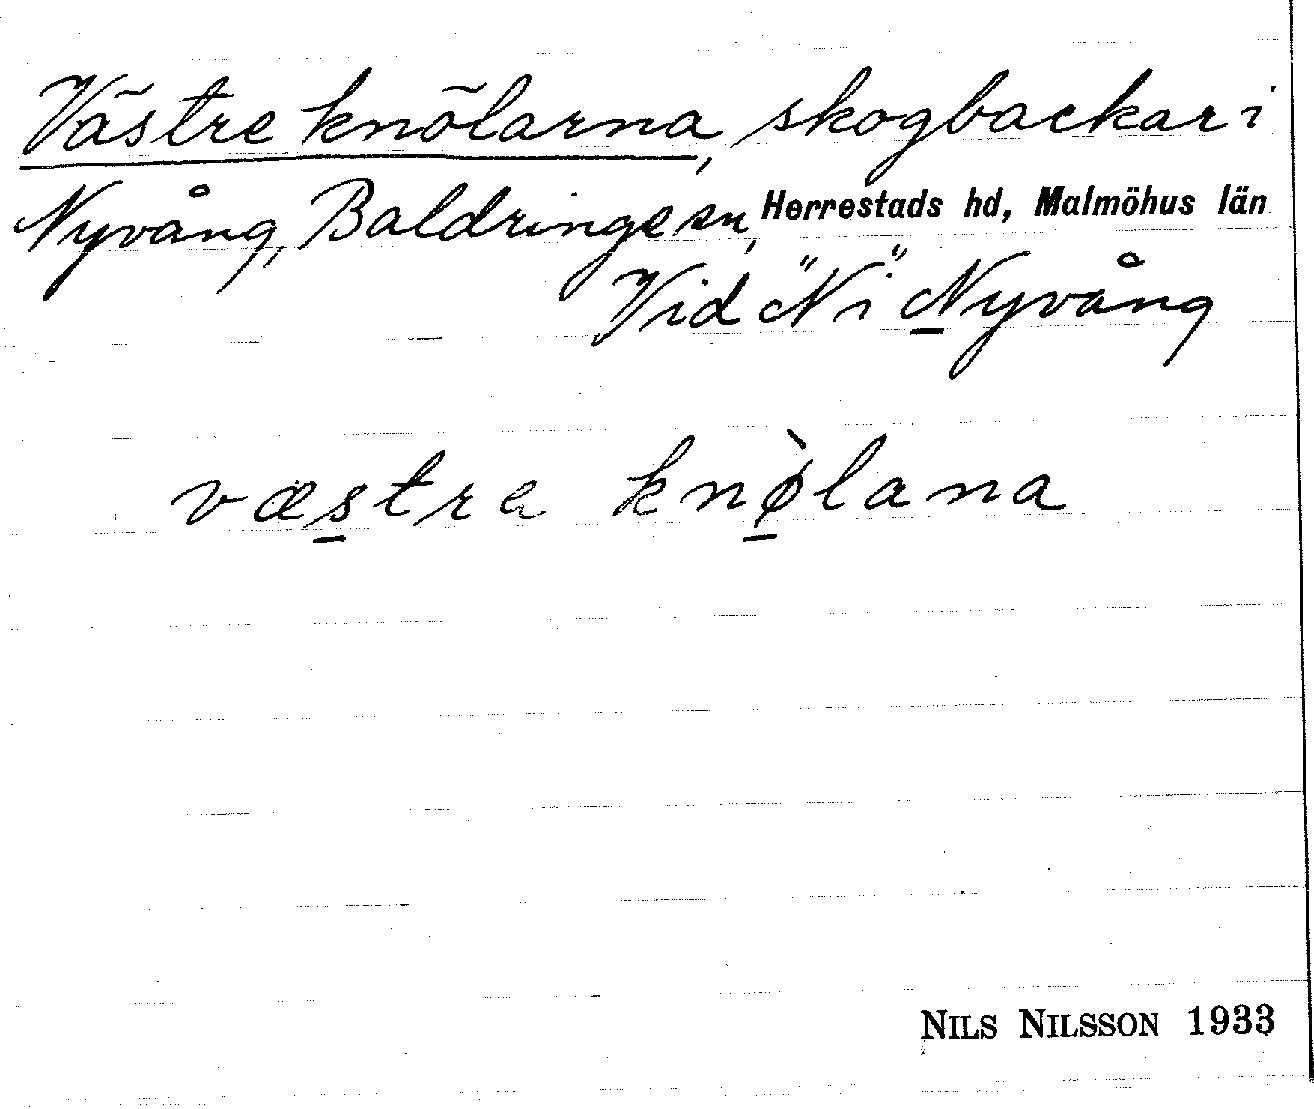 Västre knölarna, skogbackar i
Nyvång, Baldringe sn, Herrestads hd, Malmöhus län
Vid "N i" Nyvång
væstre knø̀lana
NILS NILSSON 1933